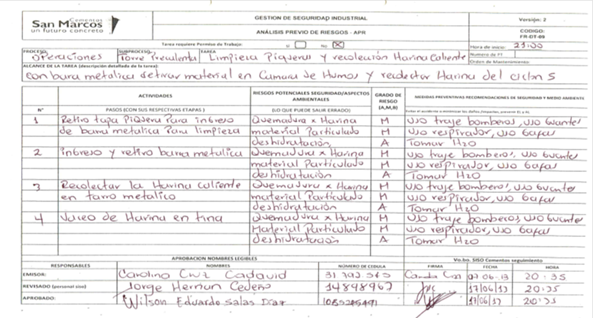 Cementos
San Marcos
un futuro concreto
GESTION DE SEGURIDAD INDUSTRIAL
Versión: 2
ANÁLISIS PREVIO DE RIESGOS - APR
CÓDIGO:
FR-DT-08
Tarea requiere Permiso de Trabajo: si No X
Hora de inicio: 21:00
PROCESO: SUBPROCESO: TAREA
Operaciones Torre Precalenta Limpieza Piqueras y recolección Harina Caliente
Numero de PT
Orden de Mantenimiento
ALCANCE DE LA TAREA (descripción detallada de la tarea)
con barra metalica retirar material en Camara de Humos y Harina del ciclon 5
ACTIVIDADES
RIESGOS POTENCIALES SEGURIDAD/ASPECTOS AMBIENTALES
GRADO DE RIESGO (A,M,B)
MEDIDAS PREVENTIVAS RECOMENDACIONES DE SEGURIDAD Y MEDIO AMBIENTE
N° PASOS (CON SUS RESPECTIVAS ETAPAS)
(LO QUE PUEDE SALIR ERRADO)
1 Retiro tapa Piquera Para ingreso Quemadura x Harina M uso traje bomberos, uso Guantes
de barra metalica Para limpieza material Particulado M uso respirador, uso Gafas
deshidratación A Tomar H2O
2 ingreso y retiro barra metalica Quemadura x Harina M uso traje bomberos, uso Guantes
material Particulado M uso respirador, uso Gafas
deshidratación A Tomar H2O
3 Recolectar la Harina caliente Quemadura x Harina M uso traje bomberos, uso Guantes
en tarro metalico material Particulado M uso respirador, uso Gafas
deshidratación A Tomar H2O
4 Vaceo de Harina en tina Quemadura x Harina M uso traje bomberos, uso Guantes
Material Particulado M uso respirador, uso Gafas
deshidratación A Tomar H2O
APROBACION NOMBRES LEGIBLES
Vo.bo. SISO Cementos seguimiento
RESPONSABLES NOMBRES NUMERO DE CEDULA FIRMA FECHA HORA
EMISOR: Carolina Cruz Cadavid 20:35
REVISADO Jorge Hernan Cedeño 14898967 20:35
APROBADO: Wilson Eduardo Salas Diaz 20:35